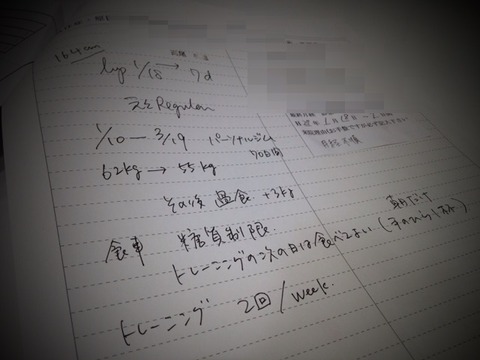 164cm
lmp 1/18 → 7d
元々Regular
1/10 ー 3/19 パーソナルジム
70日間
62kg → 55kg
その後 過食 +3kg
食事 糖質制限
朝だけ
トレーニングの次の日は食べてよい (手のひら1杯分)
トレーニング 2回 / week.